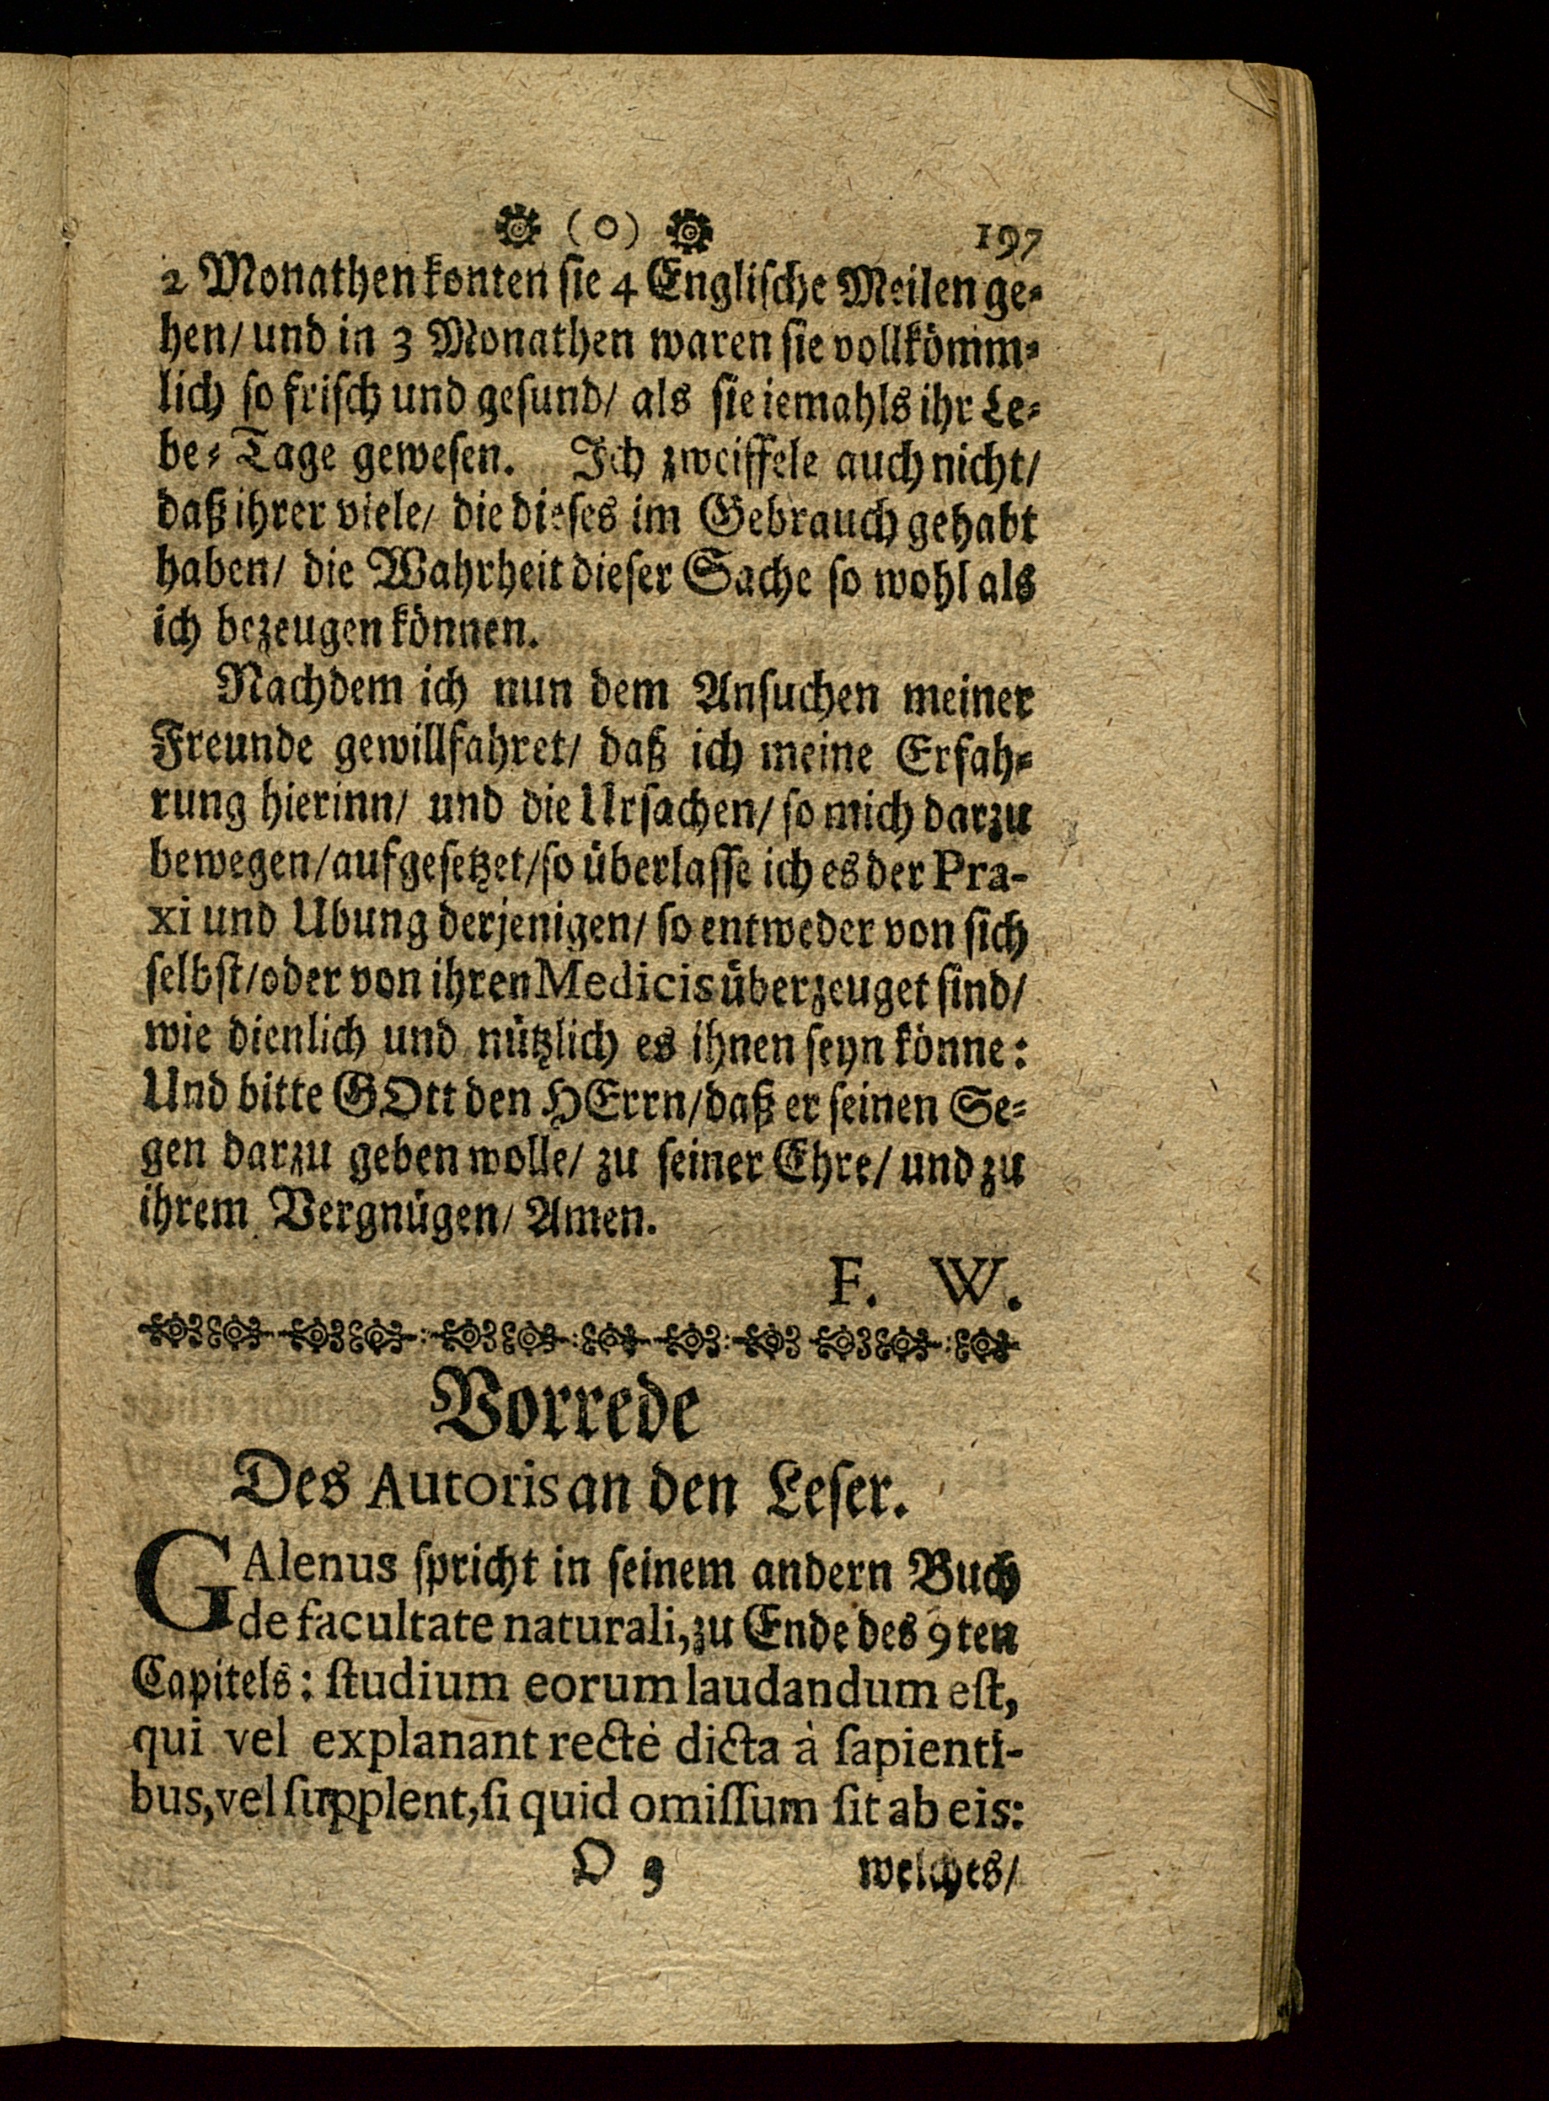 (o) 197
2 Monathen konten sie 4 Englische Meilen ge-
hen/ und in 3 Monathen waren sie vollkömm-
lich so frisch und gesund/ als sie iemahls ihr Le-
be-Tage gewesen. Ich zweiffele auch nicht/
daß ihrer viele/ die dieses im Gebrauch gehabt
haben/ die Wahrheit dieser Sache so wohl als
ich bezeugen können.
Nachdem ich nun dem Ansuchen meiner
Freunde gewillfahret/ daß ich meine Erfah-
rung hierinn/ und die Ursachen/ so mich darzu
bewegen/ aufgesetzet/ so überlasse ich es der Pra-
xi und Ubung derjenigen/ so entweder von sich
selbst/ oder von ihren Medicis überzeuget sind/
wie dienlich und nützlich es ihnen seyn könne:
Und bitte GOtt den HErrn/ daß er seinen Se-
gen darzu geben wolle/ zu seiner Ehre/ und zu
ihrem Vergnügen/ Amen.
F. W.
Vorrede
Des Autoris an den Leser.
GAlenus spricht in seinem andern Buch
de facultate naturali, zu Ende des 9ten
Capitels: studium eorum laudandum est,
qui vel explanant rectè dicta à sapienti-
bus, vel supplent, si quid omissum sit ab eis:
O 9 welches/